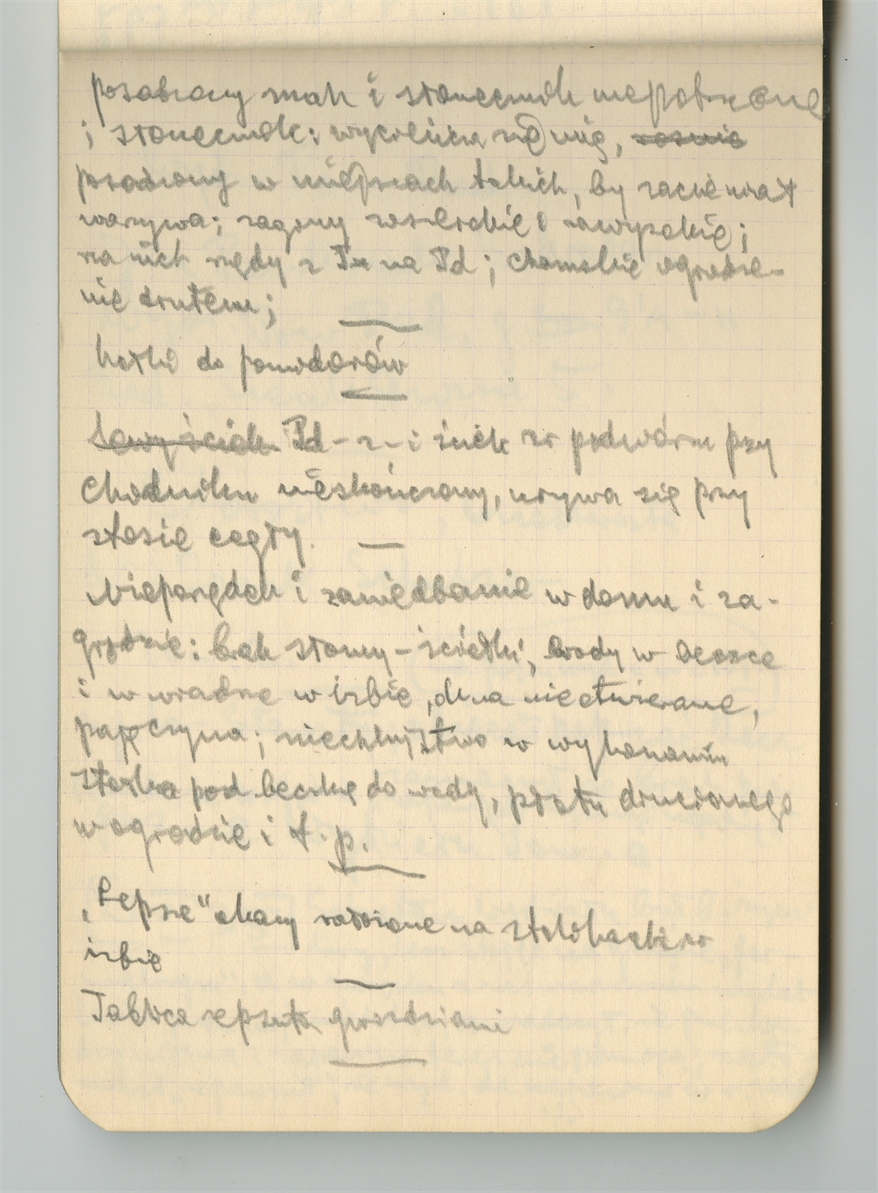 posadzony mak i słonecznik niepotrzebnie
i słonecznik: wycieńcza się nią,
posadzony w miejscach takich, by zacieniał
warzywa; zagony szerokie i za wysokie;
na nich rzędy z Pn na Pd; chamskie ogrodze-
nie drutem;
kołki do pomidorów
Pd - z - i ściek w podwórzu przy
chodniku nieskończony, urywa się przy
stosie cegły.
Nieporządek i zaniedbanie w domu i za-
grodzie: brak słomy - ściółki, wody w beczce
i w wiadrze w izbie, okna nieotwierane,
pajęczyna; niechlujstwo w wykonaniu
stołka pod beczkę do wody, płotu drucianego
w ogrodzie i t. p.
„Lepsze" okazy na stoliku w
izbie
Tablica zepsuta gwoździami